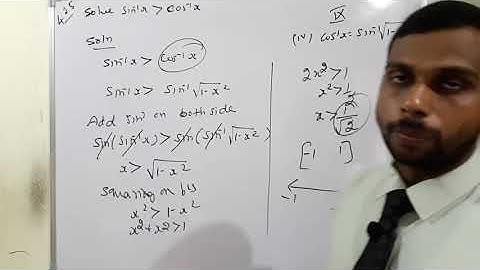 Solve sin⁻¹x > cos⁻¹x
Soln
sin⁻¹x > cos⁻¹x
sin⁻¹x > sin⁻¹√1-x²
Add sin on both side
sin(sin⁻¹x) > sin(sin⁻¹√1-x²)
x > √1-x²
Squaring on b/s
x² > 1-x²
x²+x² > 1
IX
(iv) cos⁻¹x = sin⁻¹√1-
2x² > 1
x² > 1/2
x > 1/√2
[-1 1]
-1